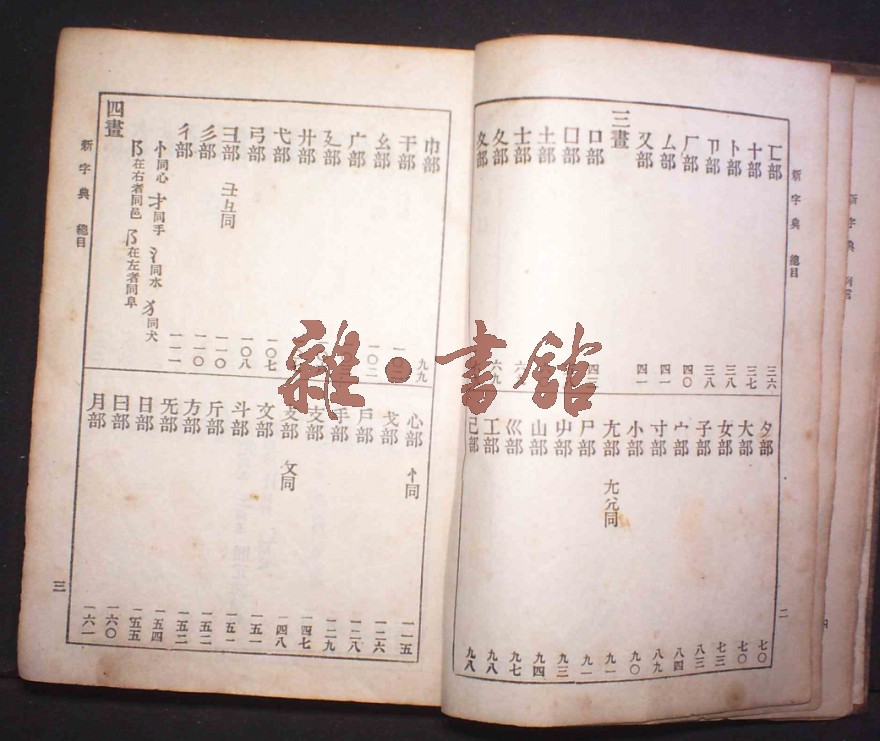 新字典 總目
匸部 三六
十部 三七
卜部 三八
卩部 三八
厂部 四〇
厶部 四一
又部 四一
三畫
口部
囗部
土部
士部
夂部
夊部
夕部 七〇
大部 七〇
女部 七三
子部 八三
宀部 八四
寸部 八九
小部 九〇
尢部 尣兀同 九一
尸部 九一
屮部 九三
山部 九四
巛部 九七
工部 九八
己部 九八
二
巾部 九九
干部
幺部 一〇二
广部
廴部
廾部
弋部 一〇七
弓部 一〇八
彐部 彑同 一一〇
彡部 一一〇
彳部 一一一
忄同心 扌同手 氵同水 犭同犬
阝在右者同邑 阝在左者同阜
四畫
新字典 總目
心部 忄同 一一五
戈部 一二六
戶部 一二八
手部 一二九
支部 一四七
攴部 攵同 一四八
文部 一五一
斗部 一五一
斤部 一五二
方部 一五二
无部 一五四
日部 一五五
曰部 一六〇
月部 一六一
三
雜·書館